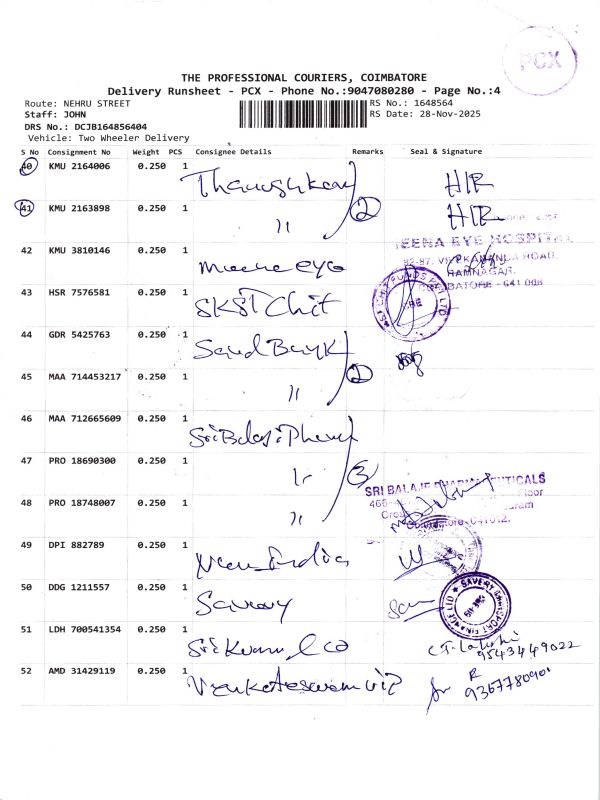 PCX
THE PROFESSIONAL COURIERS, COIMBATORE
Delivery Runsheet - PCX - Phone No.:9047080280 - Page No.:4
Route: NEHRU STREET
RS No.: 1648564
Staff: JOHN
RS Date: 28-Nov-2025
DRS No.: DCJB164856404
Vehicle: Two Wheeler Delivery
S No Consignment No Weight PCS Consignee Details Remarks Seal & Signature
40 KMU 2164006 0.250 1 H/R
41 KMU 2163898 0.250 1 " 2 H/R
EENA EYE HOSPITAL
82-87, VIVEKANANDA ROAD,
RAMNAGAR,
COIMBATORE - 641 009
42 KMU 3810146 0.250 1 eye
43 HSR 7576581 0.250 1 SKST Chit
44 GDR 5425763 0.250 1
45 MAA 714453217 0.250 1 " 2
46 MAA 712665609 0.250 1 Sri Balaji
47 PRO 18690300 0.250 1 " 3
SRI BALAJE PHARMACEUTICALS
48 PRO 18748007 0.250 1 "
49 DPI 882789 0.250 1 India
50 DDG 1211557 0.250 1
51 LDH 700541354 0.250 1 Sri Kumar & Co
9543449022
52 AMD 31429119 0.250 1